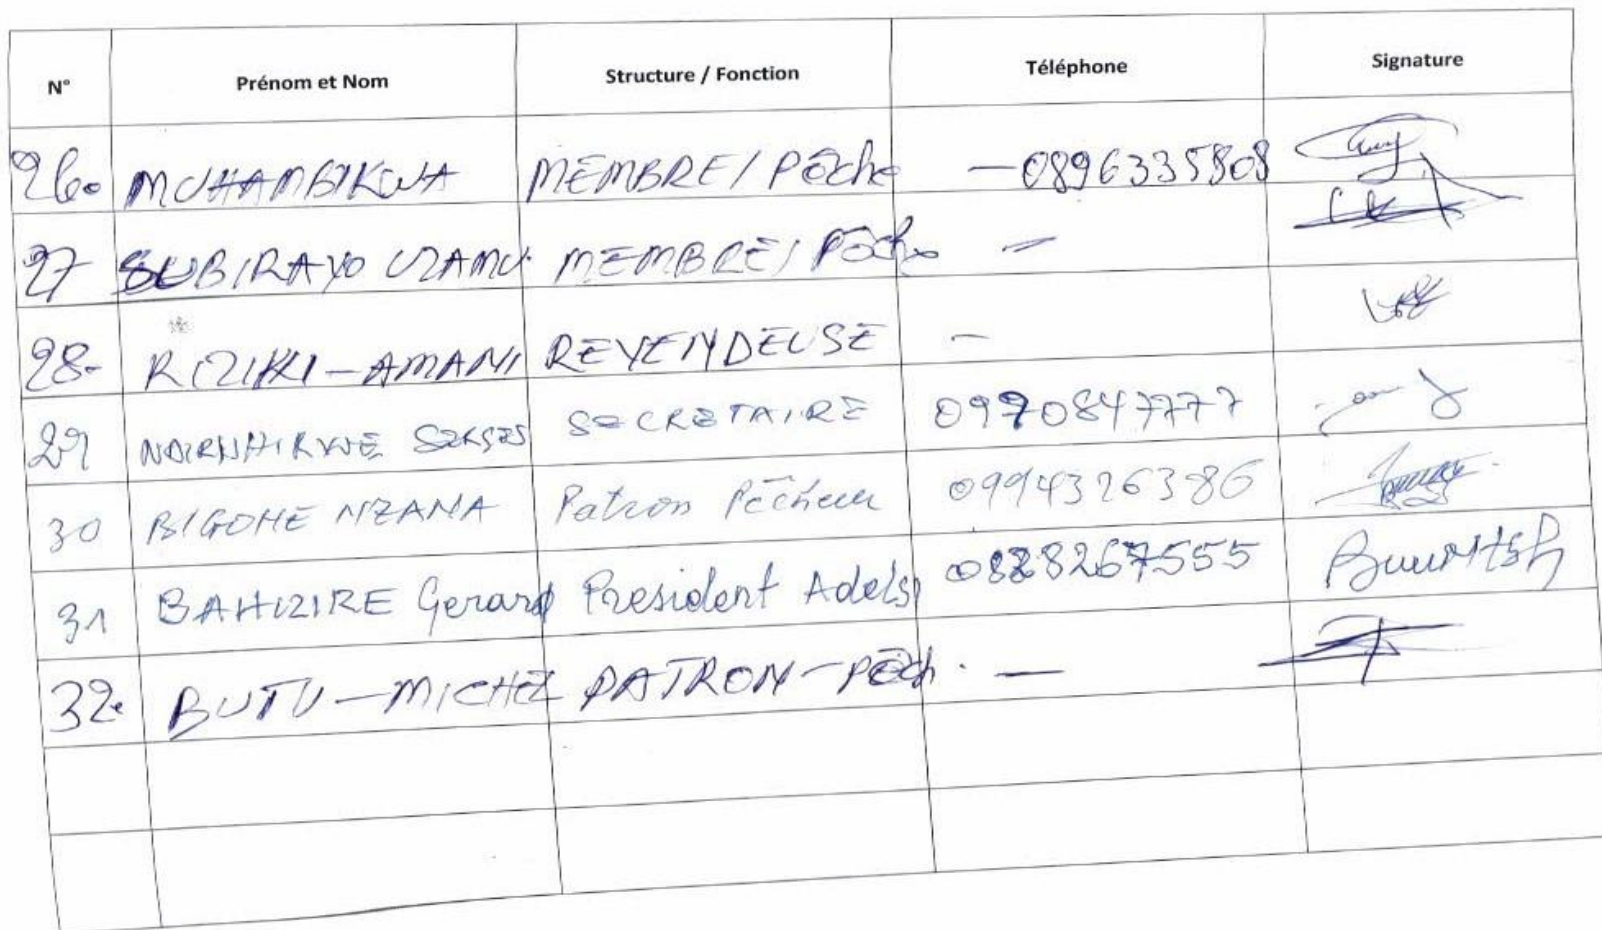 N° Prénom et Nom Structure / Fonction Téléphone Signature
26. MUHAMBIKWA MEMBRE/ Pêche — 0896335808
27 SUBIRAYO UZAMU. MEMBRE/ Pêche —
28- RIZIKI - AMANI REVENDEUSE -
29 SECRETAIRE 0990847777
30 BIGOHE NZANA Patron Pêcheur 0994326386
31 BAHIZIRE Gerard President Adelsi 0828267555
32. BUTU - MICHEL PATRON - Pêch. —